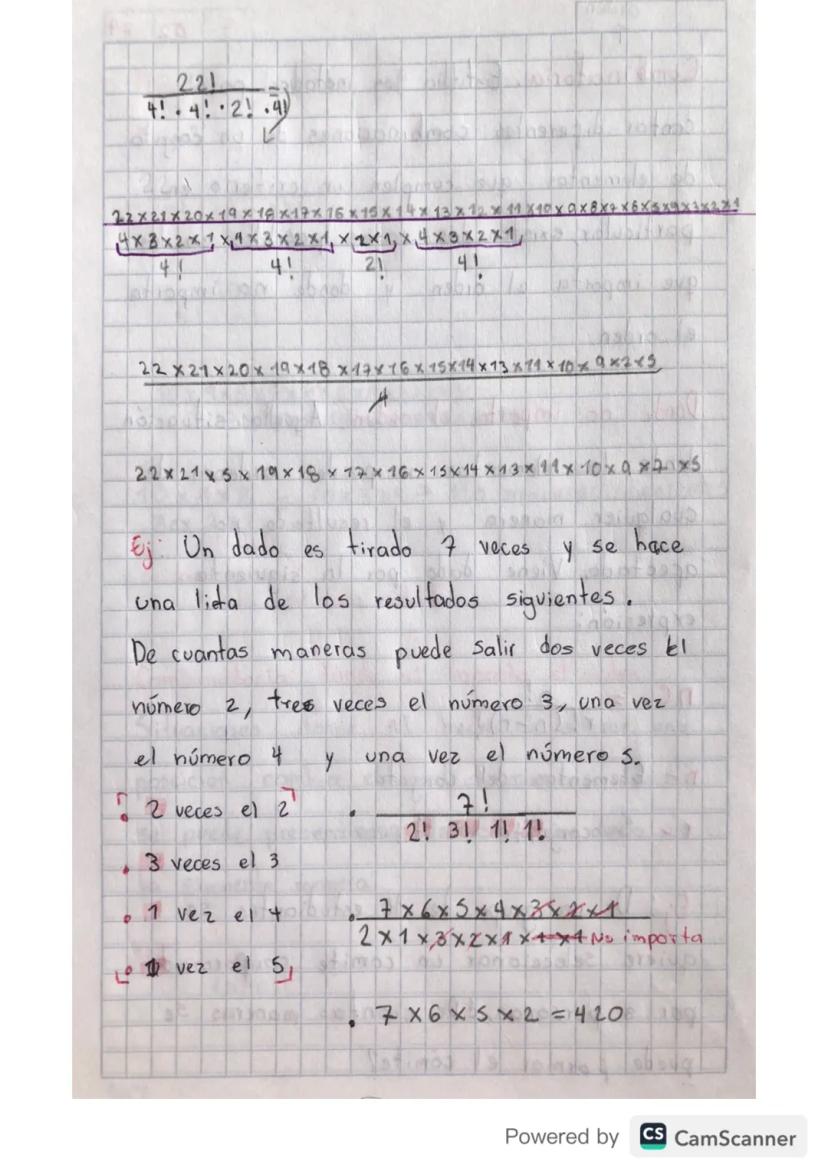 22!
4! · 4! · 2! · 4! =
22×21×20×19×18×17×16×15×14×13×12×11×10×9×8×7×6×5×4×3×2×1
4×3×2×1 × 4×3×2×1 × 2×1 × 4×3×2×1
4! 4! 2! 4!
22×21×20×19×18×17×16×15×14×13×11×10×9×2×5
4
22×21×5×19×18×17×16×15×14×13×11×10×9×7×5
Ej: Un dado es tirado 7 veces y se hace
una lista de los resultados siguientes.
De cuantas maneras puede salir dos veces el
número 2, tres veces el número 3, una vez
el número 4 y una vez el número 5.
• 2 veces el 2
• 3 veces el 3
• 1 vez el 4
• 1 vez el 5
• 7!
2! 3! 1! 1!
• 7×6×5×4×3×2×1
2×1×3×2×1×1×1 No importa
• 7×6×5×2=420
Powered by CS CamScanner